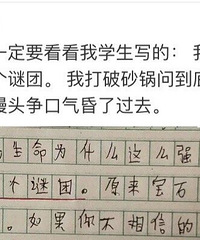 一定要看看我学生写的： 我
个谜团。 我打破砂锅问到底
馒头争口气昏了过去。
生命为什么这么强
个谜团。原来宝石
。如果你不相信的